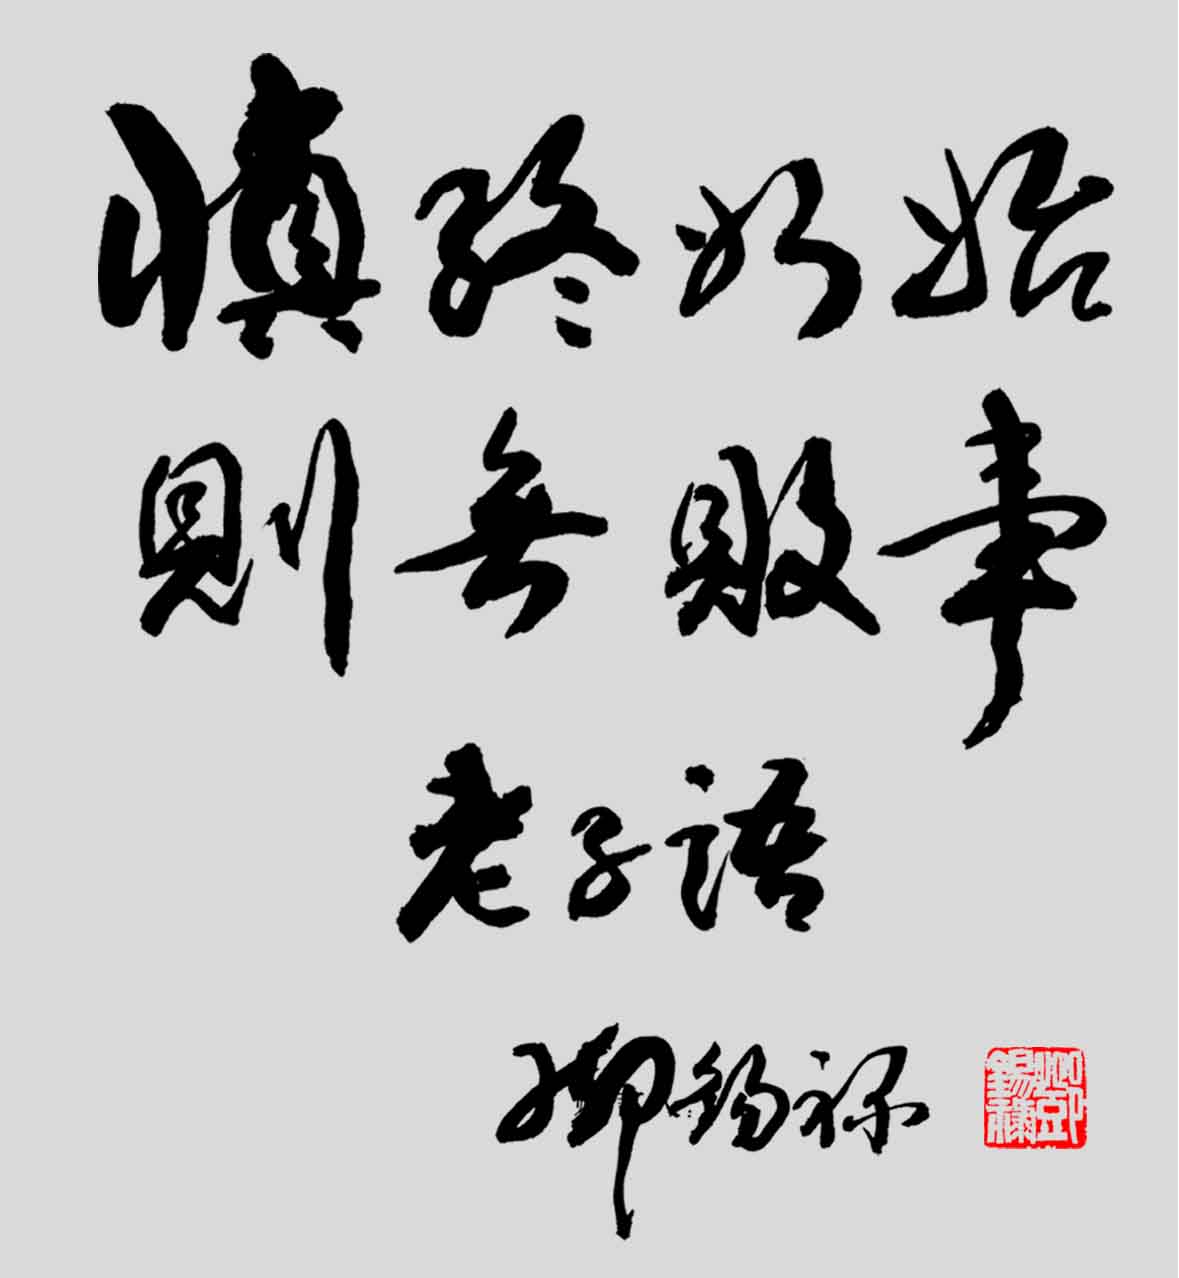 慎終如始
則無敗事
老子語
錫